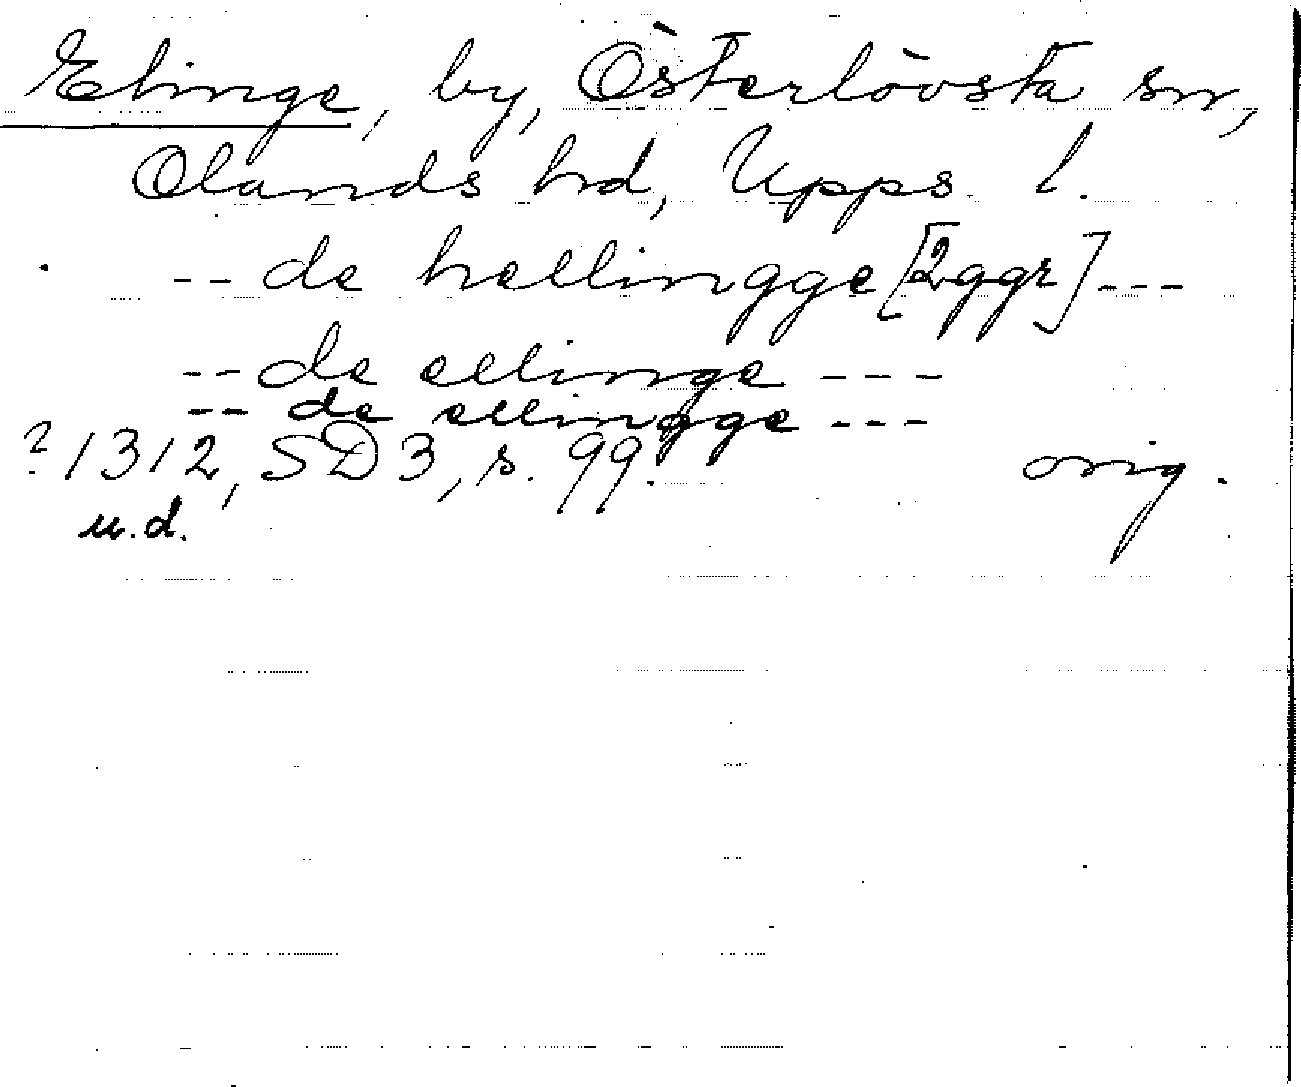 Elinge, by, Österlövsta sn,
Olands hd, Upps. l.
-- de hellingge [2ggr] ---
-- de ellinge ---
-- de ellingge ---
? 1312, SD 3, s. 99. orig.
u.d.